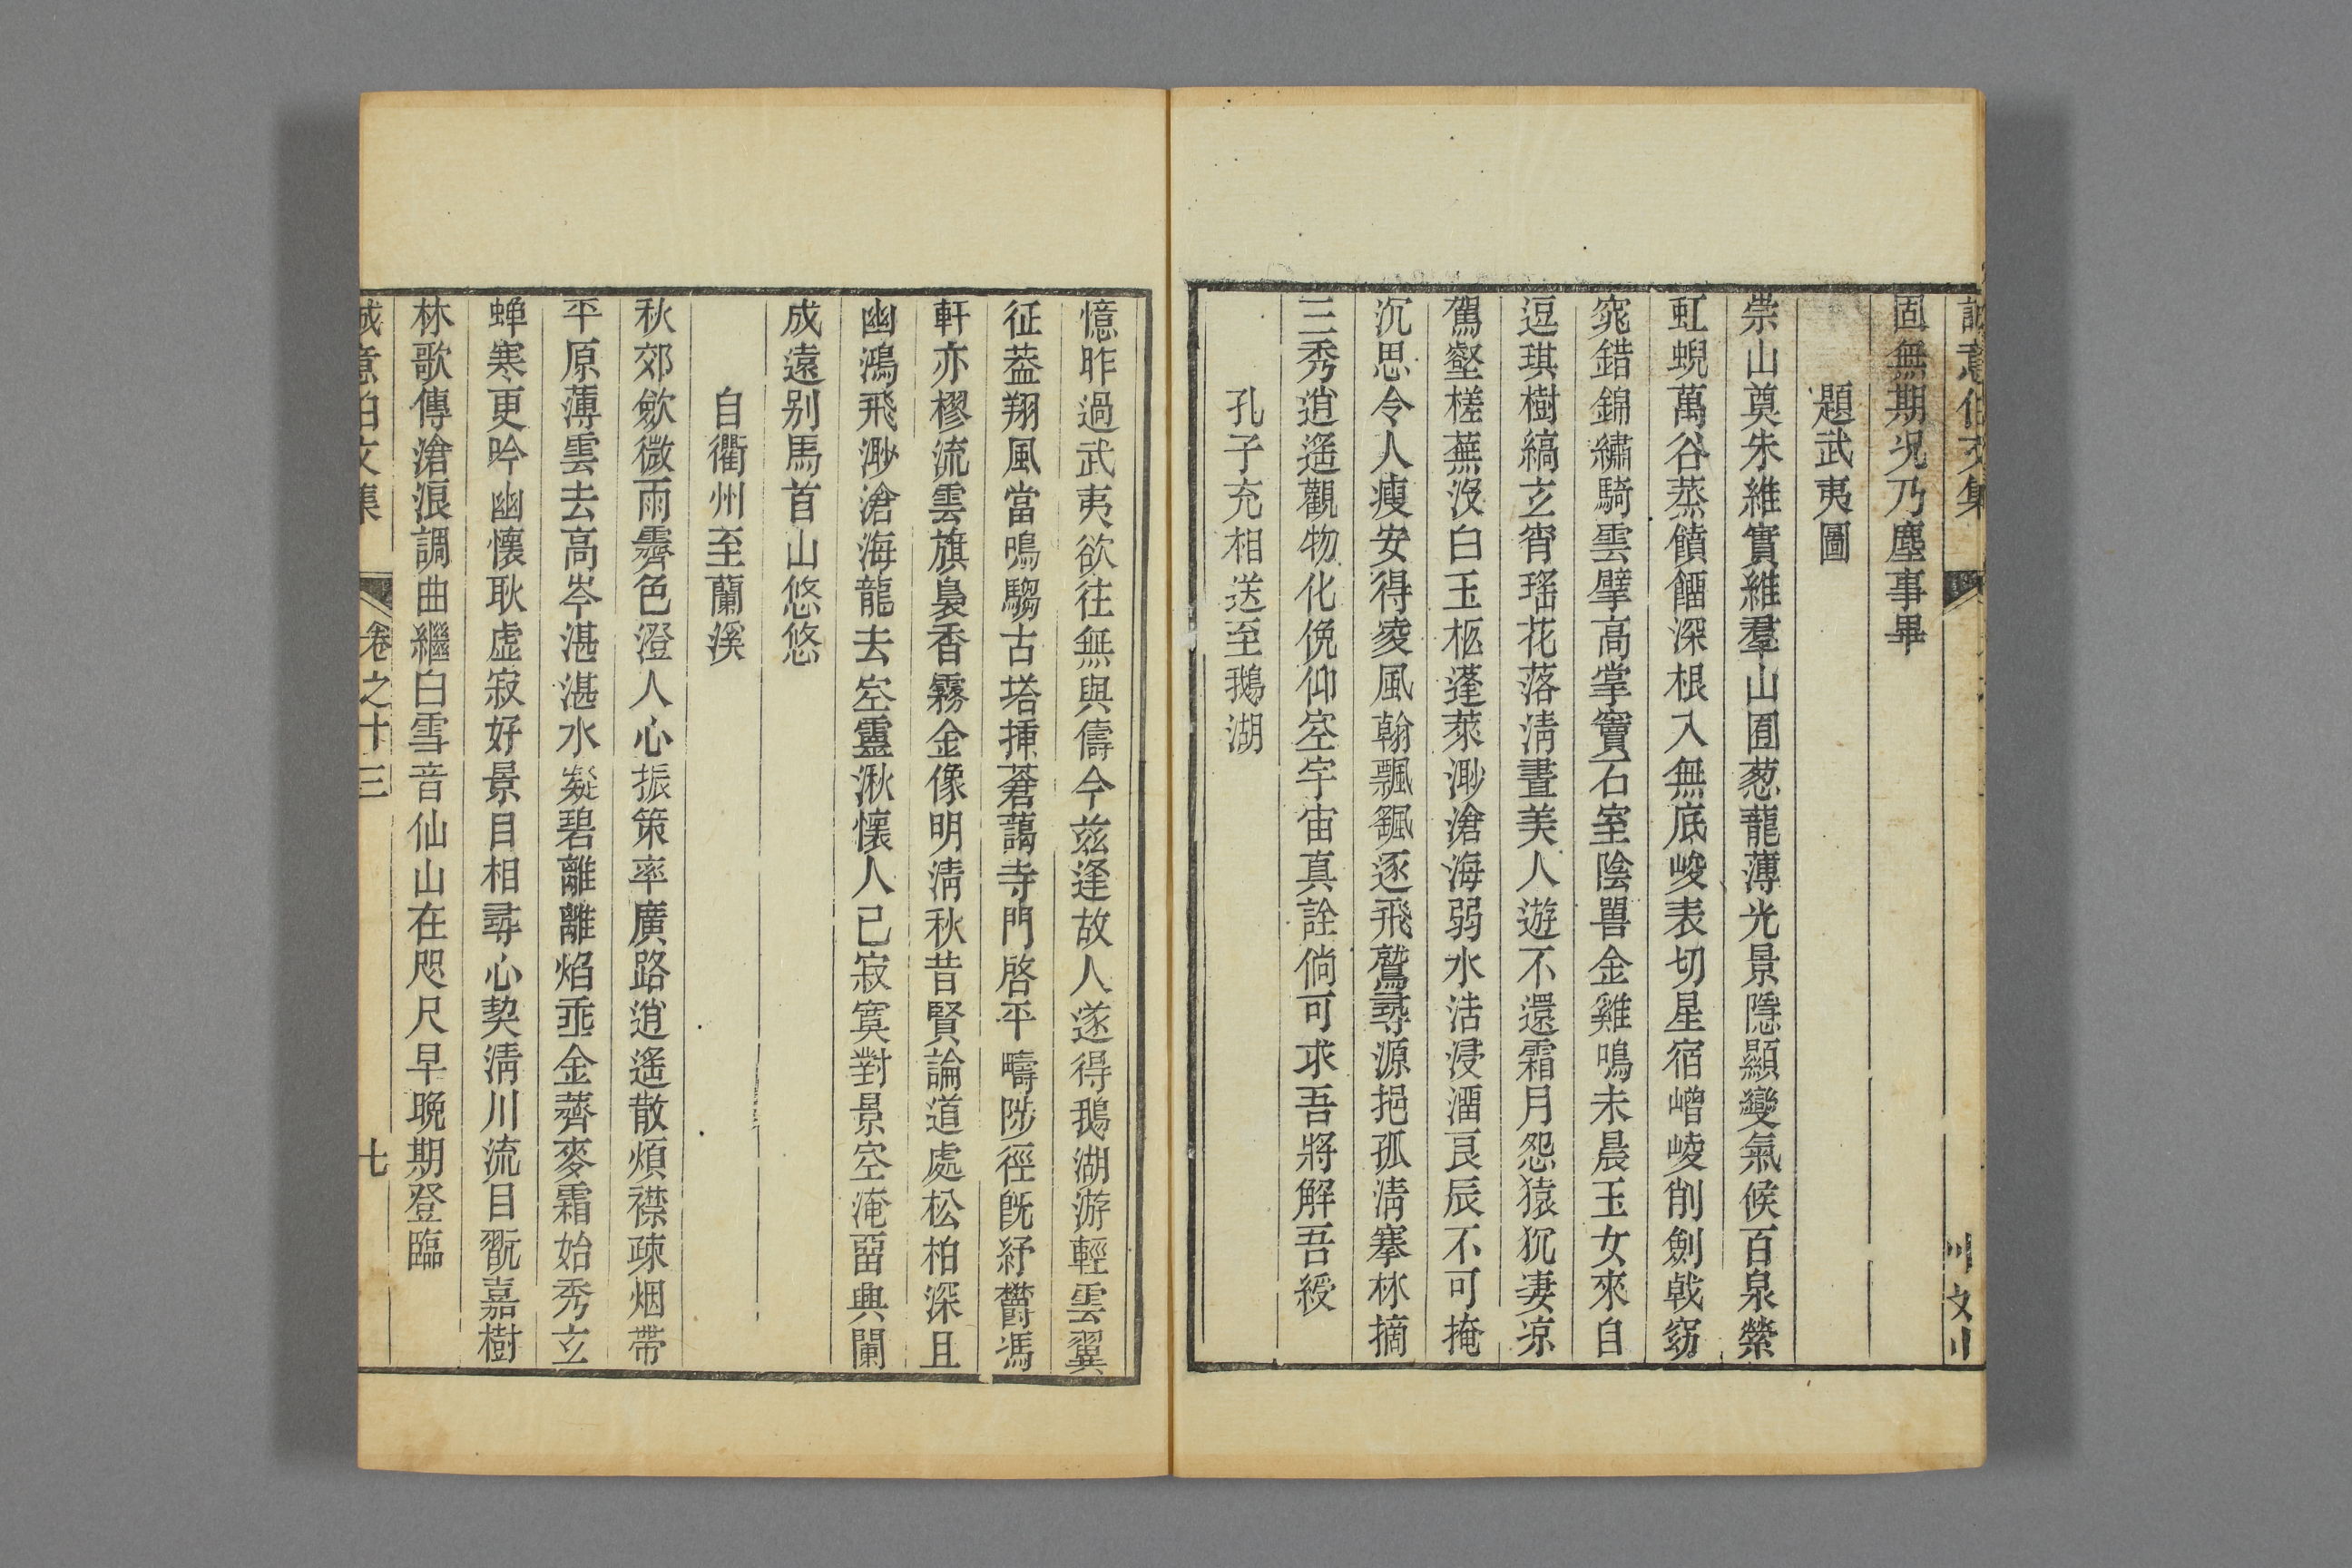 誠意伯文集
固無期况乃塵事畢
題武夷圖
崇山奠朱維實維羣山囿葱蘢薄光景隱顯變氣候百泉縈
虹蜺萬谷蒸饙餾深根入無底峻表切星宿嶒崚削劍戟窈
窕錯錦繡騎雲擘高掌竇石室陰嘼金雞鳴未晨玉女來自
逗琪樹縞玄宵瑤花落清晝美人遊不還霜月怨猿狖凄凉
駕壑槎蕪没白玉柩蓬萊渺滄海弱水活浸溜良辰不可掩
沉思令人瘦安得凌風翰飄颻逐飛鷲尋源挹孤清搴林摘
三秀逍遥觀物化俛仰窮宇宙真詮倘可求吾將解吾綬
孔子充相送至鵝湖
憶昨過武夷欲往無與儔今兹逢故人遂得鵝湖游輕雲翼
征葢翔風當鳴騶古塔揷蒼藹寺門啓平疇陟徑旣紆欝馮
軒亦樛流雲旗裊香霧金像明清秋昔賢論道處松柏深且
幽鴻飛渺滄海龍去空靈湫懷人已寂寞對景空淹留興闌
成遠别馬首山悠悠
自衢州至蘭溪
秋郊歛微雨霽色澄人心振策率廣路逍遥散煩襟疎烟帶
平原薄雲去高岑湛湛水凝碧離離焰垂金薺麥霜始秀玄
蟬寒更吟幽懷耿虚寂好景目相尋心契清川流目翫嘉樹
林歌傳滄浪調曲繼白雪音仙山在咫尺早晚期登臨
誠意伯文集 卷之十三 七